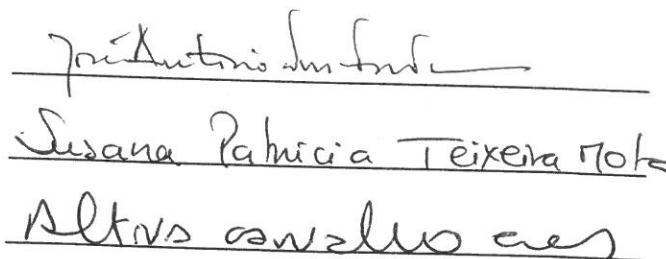 José Antonio
Susana Patricia Teixeira Mota
Altiva Carvalho